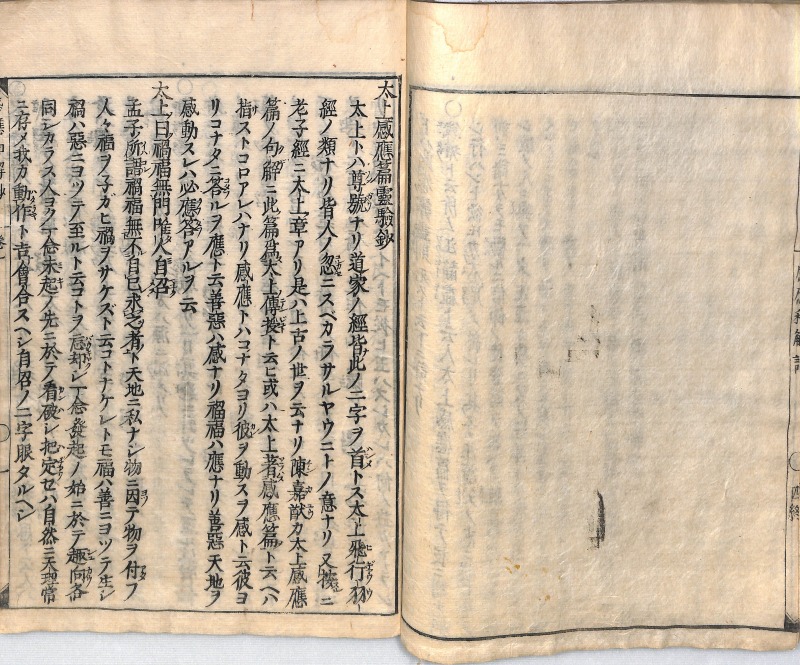 太上感應篇靈驗鈔
太上トハ尊號ナリ道家ノ經皆此ノ二字ヲ首トス太上飛行羽
經ノ類ナリ皆人ノ忽ニスベカラサルヤウニトノ意ナリ又按ニ
老子經ニ太上章アリ是ハ上古ノ世ヲ云ナリ陳嘉猷カ太上感應
篇ノ句解ニ此篇爲太上傳授ト云ヒ或ハ太上著感應篇ト云ヘハ
指ストコロアレハナリ感應トハコナタヨリ彼ヲ動スヲ感ト云彼ヨ
リコナタニ答ルヲ應ト云善惡ハ感ナリ禍福ハ應ナリ善惡天地ヲ
感動スレハ必應答アルヲ云
太上曰禍福無門唯人自召
孟子ノ所謂禍福無不自己求之者ト天地ニ私ナシ物ニ因テ物ヲ付フ
人々福ヲ子カヒ禍ヲサケズト云コトナケレトモ福ハ善ニヨツテ生シ
禍ハ惡ニヨツテ至ルト云コトヲ忘却シ一念發起ノ始ニ於テ趣向各
同シカラス人ヨク一念未起ノ先ニ於テ看破シ把定セハ自然ニ天理常
ニ存メ我カ動作ト吉會合スヘシ自召ノ二字眼タルヘシ